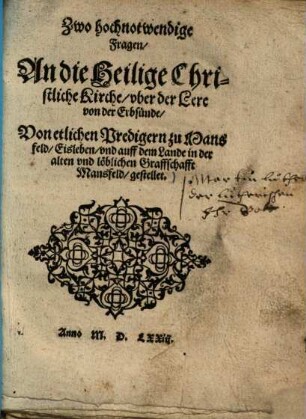 Zwo hochnotwendige
Fragen/
An die Heilige Chri-
stliche Kirche/ vber der Lere
von der Erbsünde/
Von etlichen Predigern zu Mans
feld/ Eisleben/ vnd auff dem Lande in der
alten vnd löblichen Graffschafft
Mansfeld/ gestellet.
Martin
der
Anno M. D. LXXiij.